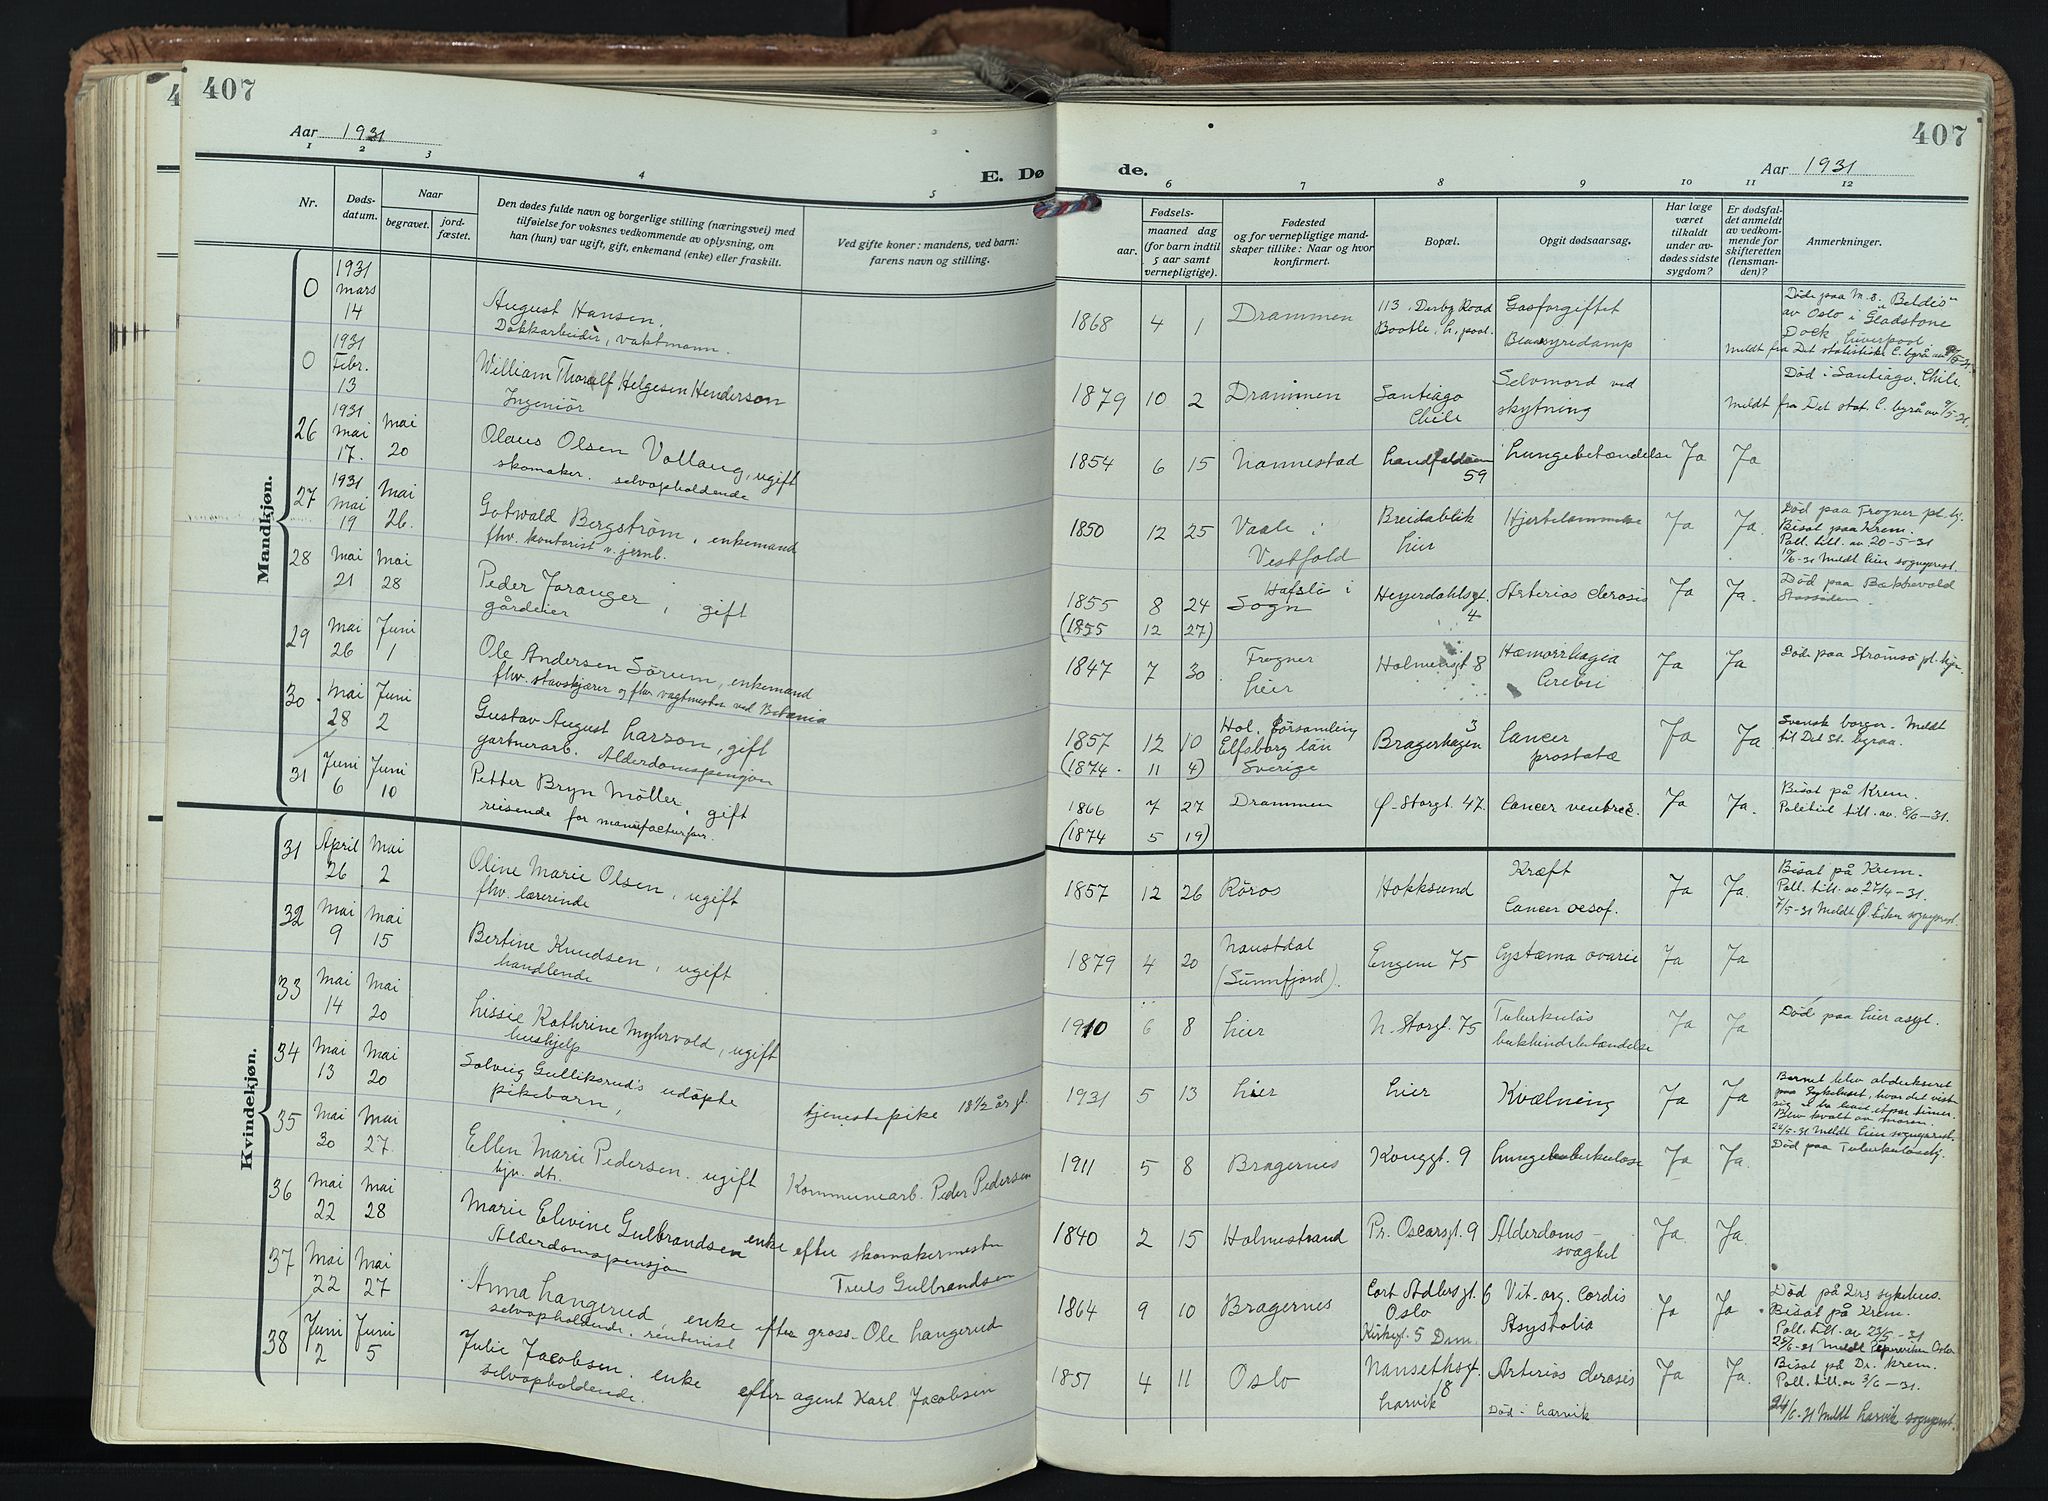 407
Aar 1931
E. Dø
1 2 3 4 5
Nr.
Døds-
datum.
Naar
begravet.
jord-
fæstet.
Den dødes fulde navn og borgerlige stilling (næringsvei) med
tilføielse for voksnes vedkommende av oplysning, om
han (hun) var ugift, gift, enkemand (enke) eller fraskilt.
Ved gifte koner: mandens, ved barn:
farens navn og stilling.
Mandkjøn.
0 1931 Mars 14
August Hansen,
Dokkarbeider, vaktmann.
0 1931 Febr. 13
William Thoralf Helgesen Henderson
Ingeniör
26 1931 Mai 17. Mai 20
Olaus Olsen Vollaug, ugift
skomaker. selvopholdende
27 1931 Mai 19 Mai 26.
Gotwald Bergström, enkemand
fhv. kontorist v. jernb.
28 Mai 21 Mai 28
Peder Joranger, gift
gårdeier
29 Mai 26 Juni 1
Ole Andersen Sörum, enkemand
fhv. stavskjærer og fhv. vagtmester ved Betania
30 Mai 28 Juni 2
Gustav August Larson, gift
gartnerarb. Alderdomspensjon
31 Juni 6 Juni 10
Petter Bryn Möller, gift
reisende for manufacturfor.
Kvindekjøn.
31 April 26 Mai 2
Oline Marie Olsen, ugift
fhv. lærerinde
32 Mai 9 Mai 15
Bertine Knudsen, ugift
handlende
33 Mai 14 Mai 20
Lissie Kathrine Myhrvold, ugift
hushjelp
34 Mai 13 Mai 20
Solveig Gulliksrud's udöpte
pikebarn, tjenestepike 18½ år gl.
35 Mai 30 Mai 27.
Ellen Marie Pedersen. ugift Kommunearb. Peder Pedersen
hjv. dtr.
36 Mai 22 Mai 28
Marie Elevine Gulbrandsen enke efter skomakermester
Alderdomspensjon Truls Gulbrandsen
37 Mai 22 Mai 27
Anna Langerud, enke efter gross. Ole Langerud
selvopholdende. rentenist
38 Juni 2 Juni 5
Julie Jacobsen. enke efter agent Karl Jacobsen
selvopholdende.
407
de.
Aar 1931
6 7 8 9 10 11 12
Fødsels-
aar. maaned dag
(for barn indtil
5 aar samt
vernepligtige).
Fødested
og for vernepligtige mand-
skaper tillike: Naar og hvor
konfirmert.
Bopæl.
Opgit dødsaarsag.
Har læge
været
tilkaldt
under av-
dødes sidste
sygdom?
Er dødsfal-
det anmeldt
av vedkom-
mende for
skifteretten
(lensman-
den)?
Anmerkninger.
1868 4 1 Drammen
113, Derby Road
Bootle, L. pool.
Gasforgiftet
Död paa M.S. "Beldis"
av Oslo i Gladstone
Dock, Liverpool
Meldt fra Det statistiske C. byrå av
1879 10 2 Drammen
Santiago
Chile
Selvmord ved
skytning
Död i Santiago, Chile.
Meldt fra Det stat. C. byrå av 9/5-31.
1854 6 15 Nannestad
59
Lungebetændelse Ja Ja
1850 12 25
Vaale i
Vestfold
Breidablik
Lier
Hjertelammelse Ja Ja.
Död paa Frogner pl. hj.
Bisat paa Krem.
Poll. till. av 20-5-31
10/6-31 Meldt Lier sogneprest.
1855 8 24
(1855 12 27)
Hafslo i
Sogn
Heyerdahlsgt.
4
Arterios clerosis Ja Ja.
Död paa Bakkevold
1847 7 30.
Frogner
Lier
Holmengt 8
Hæmorrhagia
Cerebri
Ja Ja
Död paa Strömsö pl. hjm.
1857 12 10
(1874. 11 4)
Hol. församling
Elfsborg län
Sverige
Bragerhagen 3
Cancer
prostatæ
Ja Ja.
Svensk borger. Meldt
til Det St. byraa.
1866 7 27
(1874 5 19)
Drammen
Ø. Storgt. 47.
Cancer ventric. Ja Ja.
Bisat på Krem.
Politiet till. av. 8/6-31.
1857 12 26 Röros Hokksund
Kræft
Cancer oesof.
Ja Ja.
Bisat på Krem.
Poll. till. av 27/4-31.
7/5-31 Meldt Ø. Eiker sogneprest.
1879 4 20
Naustdal
(Sunnfjord).
Engene 75
Cystæma ovarii Ja Ja
1910 6 8 Lier
N. Storgt. 75
Tuberkulös
bukhindebetændelse
Ja Ja
Död paa Lier asyl.
1931 5 13 Lier Lier Kvælning Ja Ja
Barnet blev obduseret
paa Sykehuset, hvor det viste
sig at ha levet et par timer.
Blev kvalt av moren.
24/5-31 Meldt Lier sogneprest.
1911 5 8 Bragernes Konggt. 9 Lungetuberkulose Ja Ja.
Död paa Tuberkulosehj.
1840 2 15 Holmestrand Pr. Oscarsgt. 9
Alderdoms-
svaghet
Ja. Ja.
1864 9 10 Bragernes
Cort Adlersgt. 6
Oslo
Kirkegt. 5 Dram.
Vit. org. Cordis
Asystolia
Ja Ja.
Död på Drs sykehus.
Bisat på Krem.
Poll. till. av 23/5-31
25/6-31 Meldt Oslo
1851 4 11 Oslo
Nansethsgt.
18
Larvik
Arterios clerosis
Död i Larvik
Ja Ja.
Bisat på Dr. Krem.
Poll. till. av 3/6-31.
24/6-31 Meldt Larvik sogneprest.